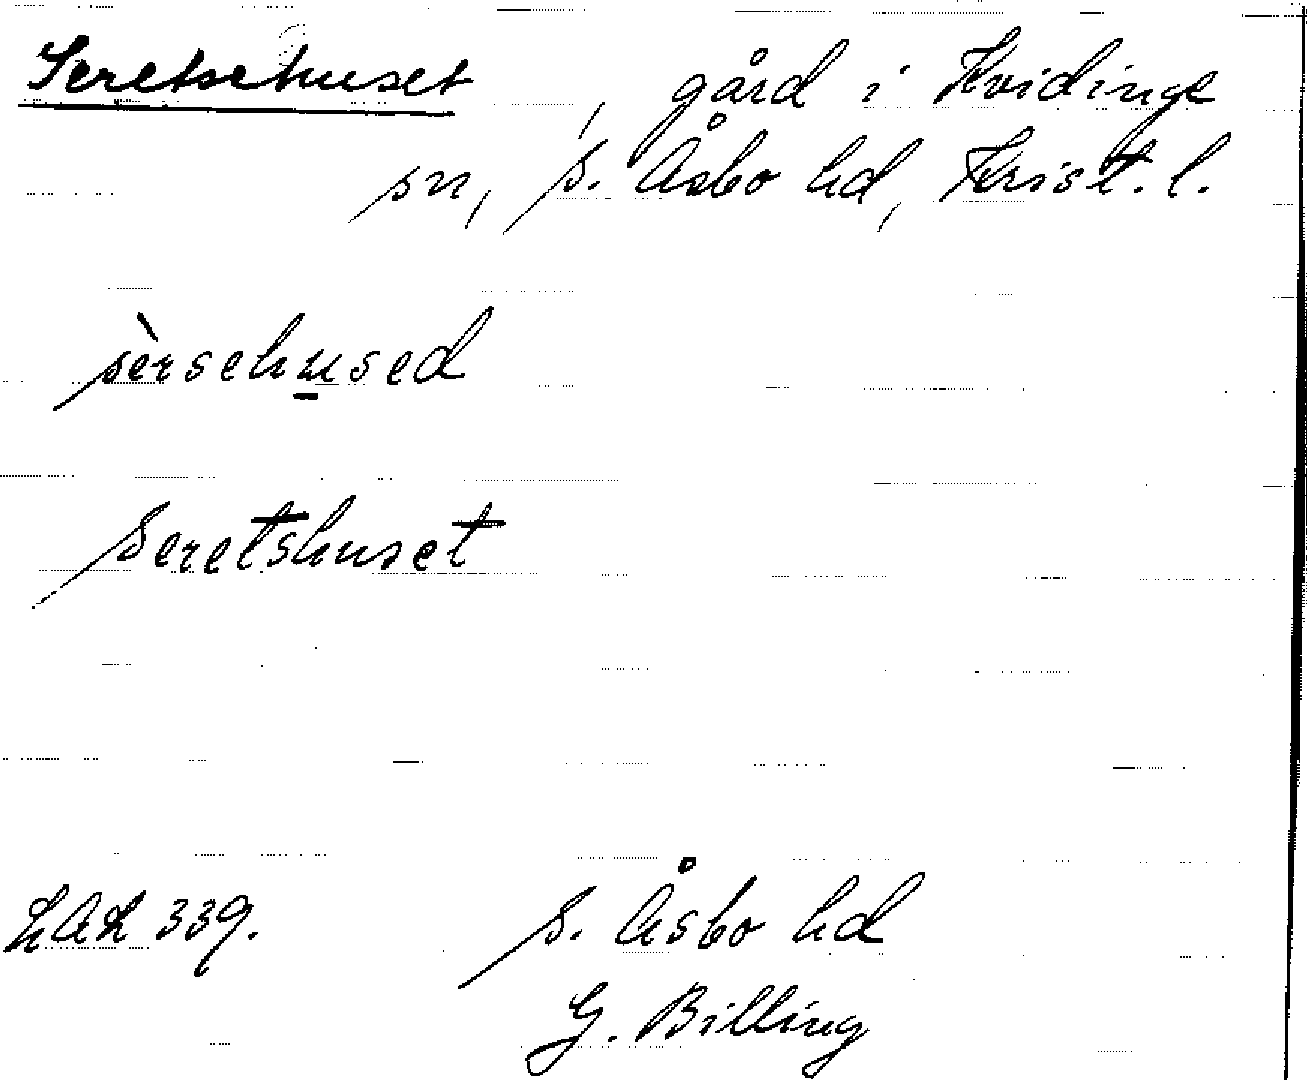 Seretsehuset, gård i Kvidinge
sn, s. Åsbo hd, Krist. l.
sèrsehused
Seretshuset
LAL 339.
s. Åsbo hd
G. Billing